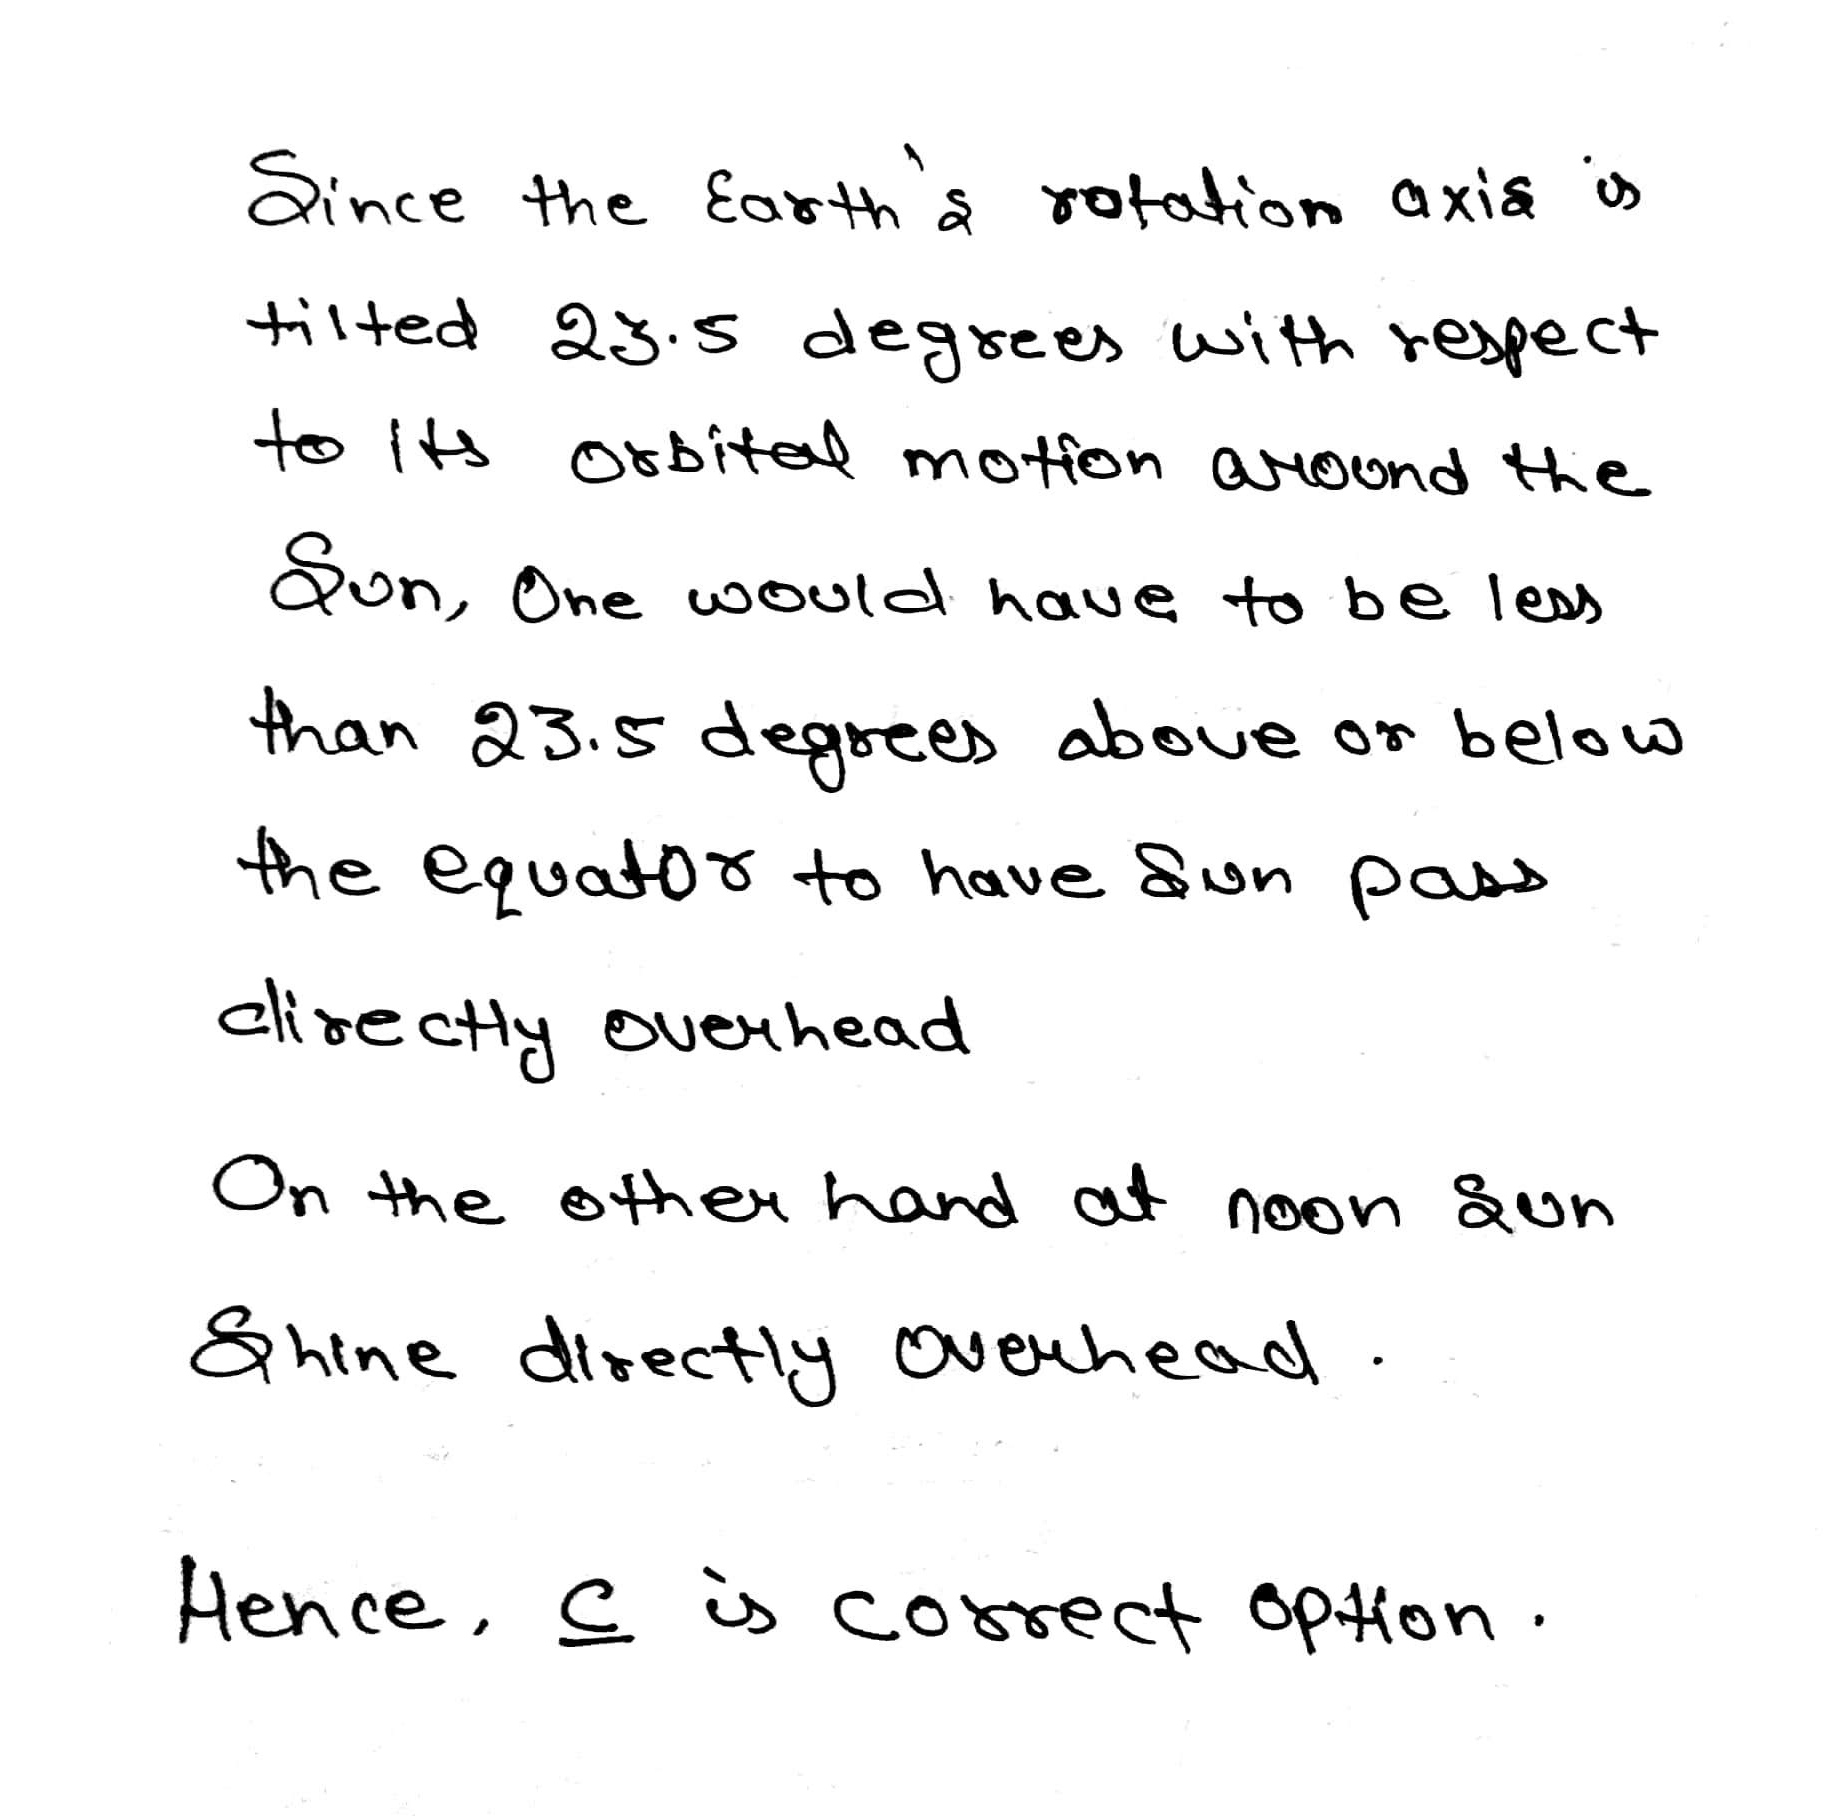 Since the Earth's rotation axis is
tilted 23.5 degrees with respect
to its orbital motion around the
Sun, One would have to be less
than 23.5 degrees above or below
the equator to have Sun pass
directly overhead
On the other hand at noon Sun
Shine directly overhead.
Hence, C is correct option.